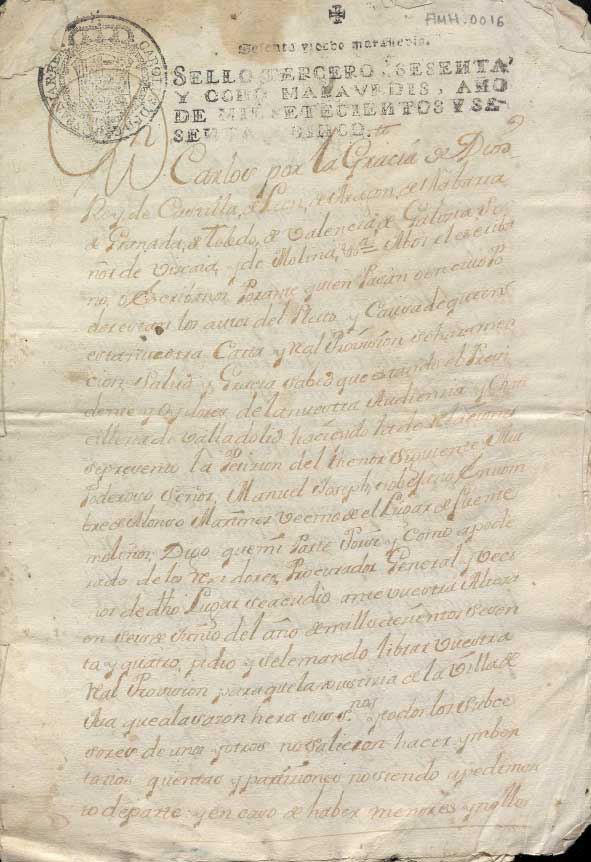 AMM.0016
Sesenta y ocho maravedis.
SELLO TERCERO, SESENTA
Y OCHO MARAVEDIS, AÑO
DE MIL SETECIENTOS Y SE-
SENTA Y CINCO.
Carlos por la Gracia de Dios
Rey de Castilla, de Leon, de Aragon, de Nabarra
de Granada, de Toledo, de Valencia, de Galicia Se
ñor de Vizcaia, y de Molina, &a. A bos el escriba
no, o Escribanos Porante quien Pasan o en cuio Po
der estan los autos del Pleito y Causa de que en
esta nuestra Carta y Real Provision se hara men
cion Salud y Gracia sabed que estando el Presi
dente y Oydores de la nuestra Audiencia y Chan
cilleria de Valladolid haciendo
se presento la Peticion del thenor siguiente Mui
Poderoso Señor, Manuel Joseph en nom
bre de Alonso Martinez vecino de el Lugar de Fuente
molinos, Digo que mi Parte Por si y como apode
rado de los rexidores, Procurador General y veci
nos de dho Lugar se acudio ante vuestra Alteza
en seis de Junio del año de mill setecientos sesen
ta y quatro, pidio y se le mando librar vuestra
Real Provision para que la Justicia de la Villa de
Aza que a la sazon hera sus y todos los subce
sores de unos y otros no saliesen hacer ymben
tarios quentas y particiones no siendo a pedimen
to de parte y en caso de haber menores y